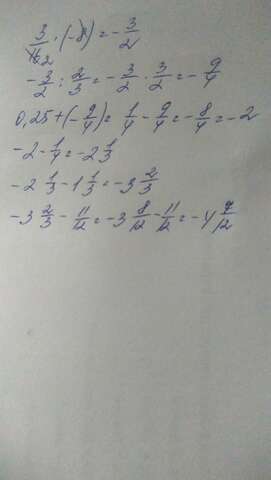 3/16 2 · (-8) = -3/2
-3/2 : 2/3 = -3/2 · 3/2 = -9/4
0,25 + (-9/4) = 1/4 - 9/4 = -8/4 = -2
-2 - 1/4 = -2 1/3
-2 1/3 - 1 1/3 = -3 2/3
-3 2/3 - 11/12 = -3 8/12 - 11/12 = -4 7/12